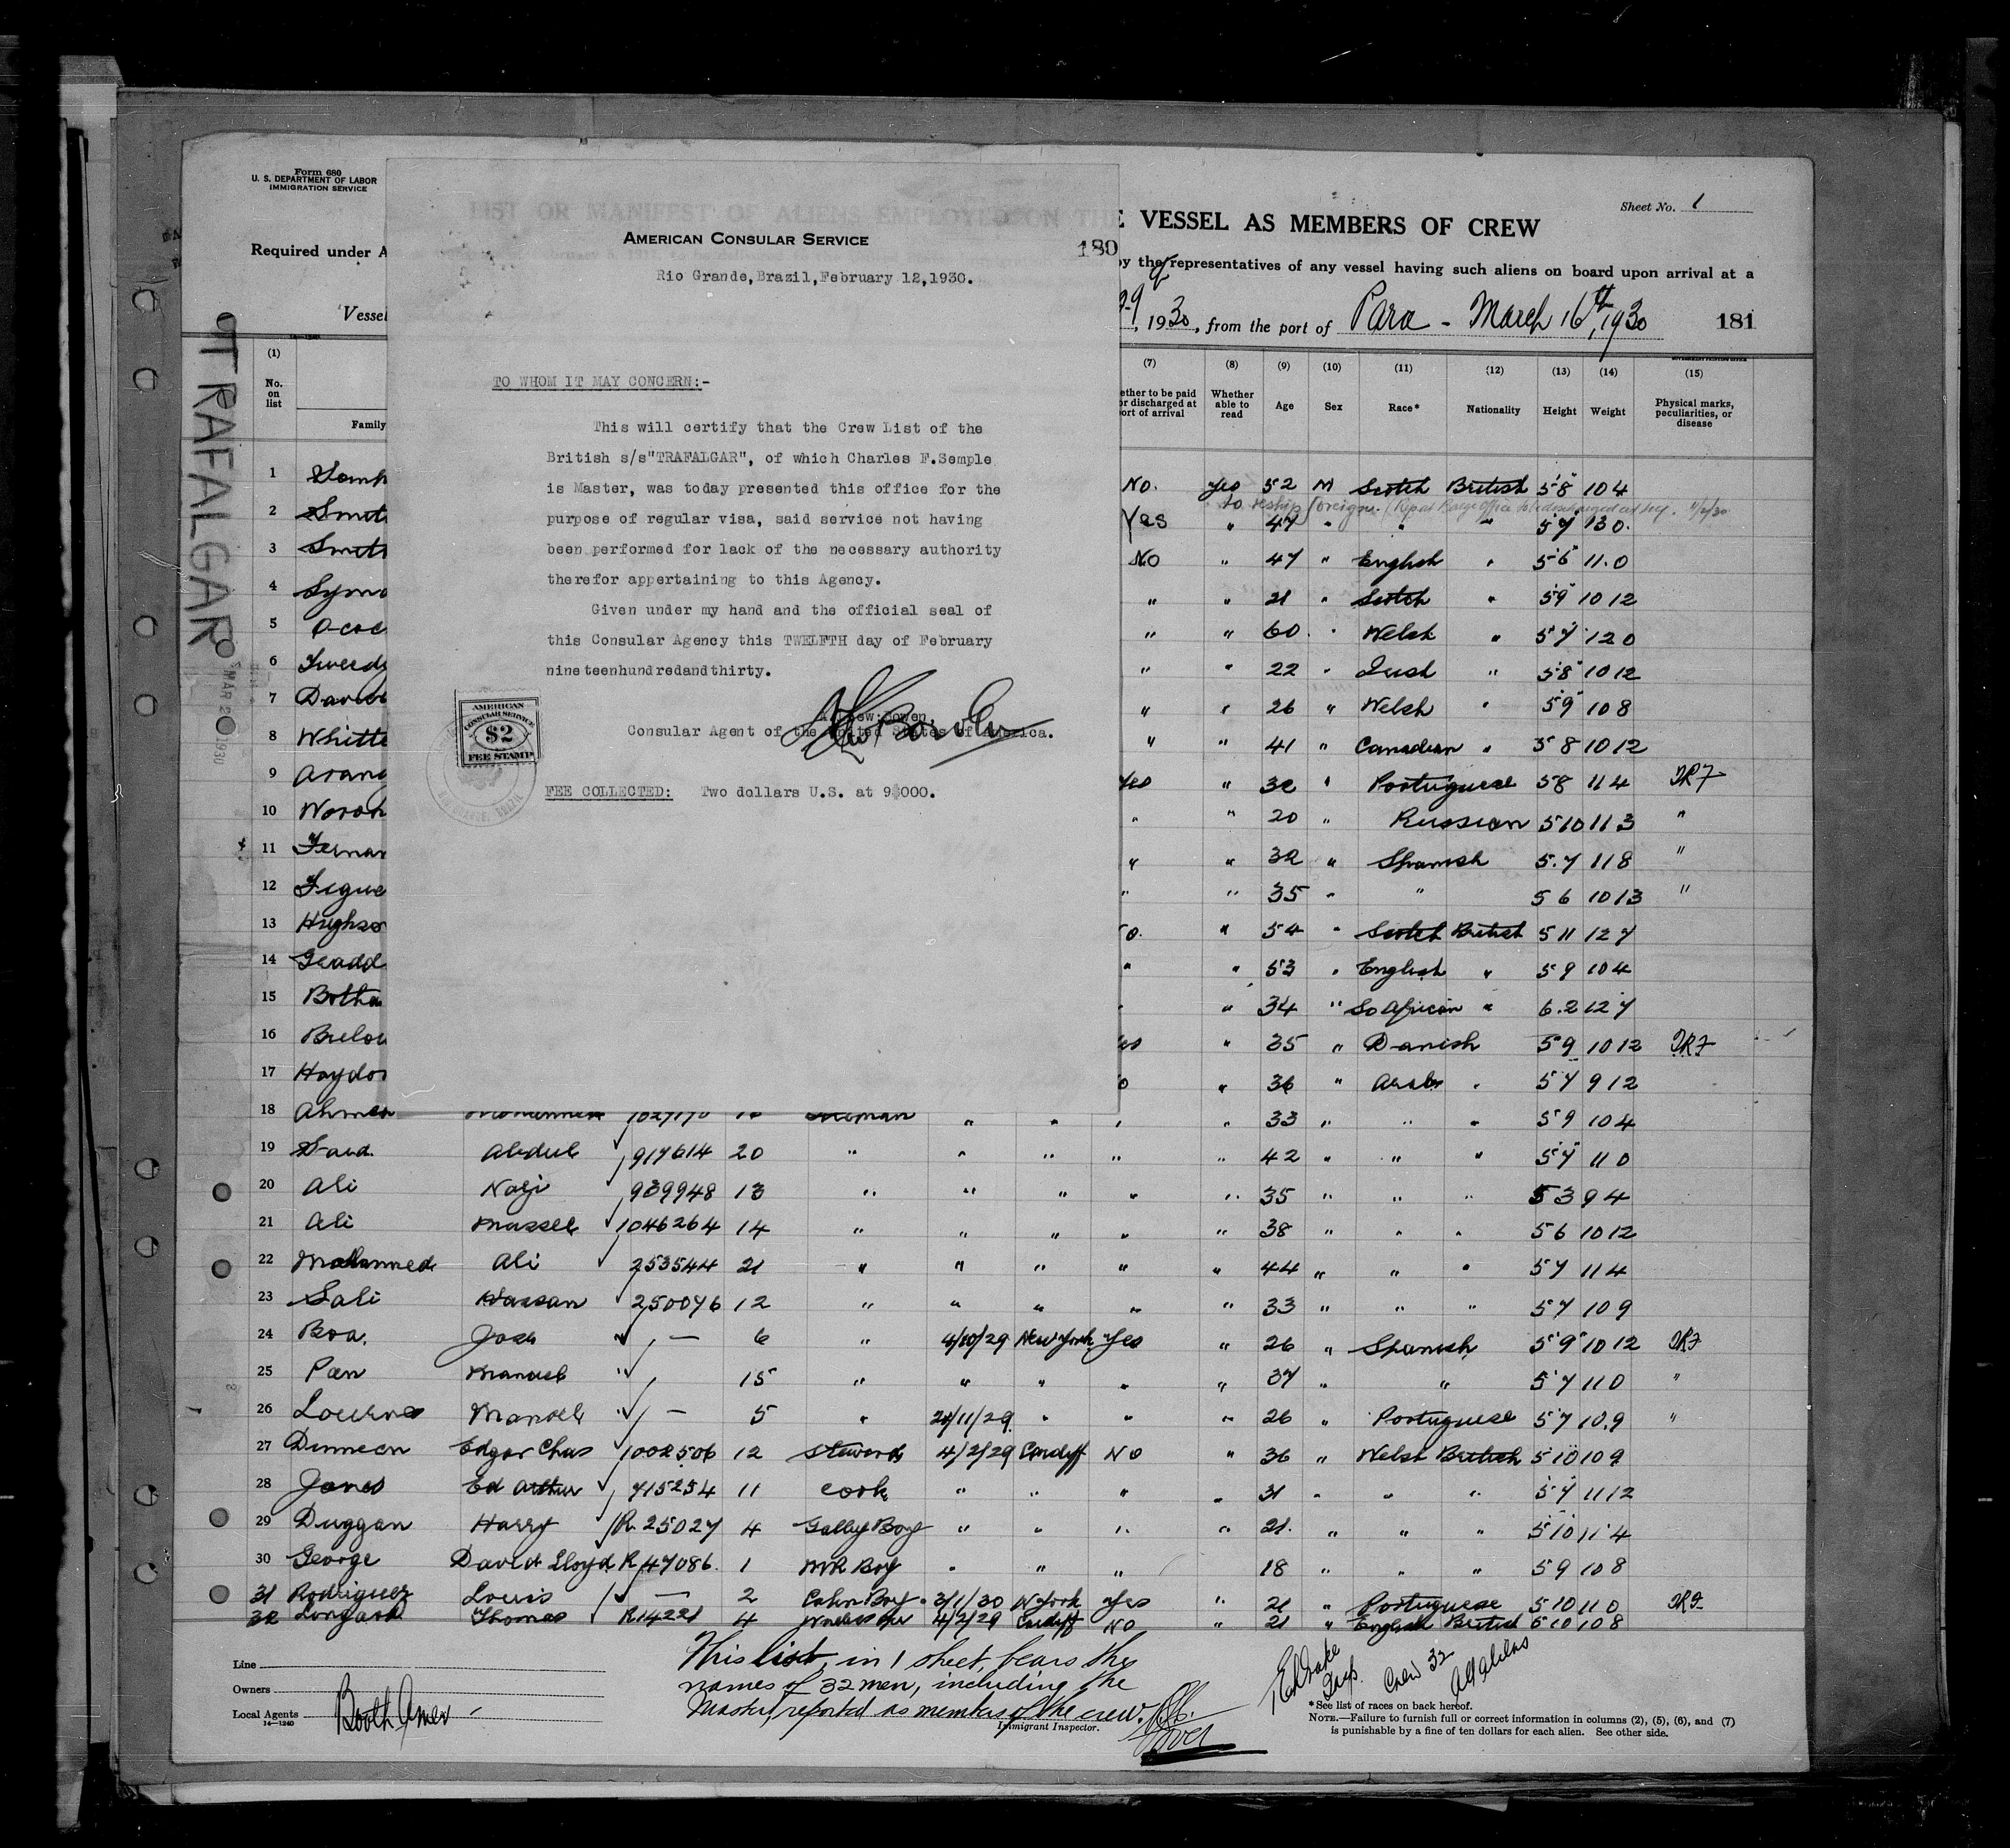 Form 680
U. S. DEPARTMENT OF LABOR
IMMIGRATION SERVICE
Sheet No. 1
LIST OR MANIFEST OF ALIENS EMPLOYED ON THE VESSEL AS MEMBERS OF CREW
Required under A
by the representatives of any vessel having such aliens on board upon arrival at a
Vessel
29, 1930, from the port of Para - March 16th, 1930
181
TRAFALGAR
AMERICAN CONSULAR SERVICE
180
Rio Grande, Brazil, February 12, 1930.
TO WHOM IT MAY CONCERN:-
This will certify that the Crew List of the
British s/s"TRAFALGAR", of which Charles F.Semple
is Master, was today presented this office for the
purpose of regular visa, said service not having
been performed for lack of the necessary authority
therefor appertaining to this Agency.
Given under my hand and the official seal of
this Consular Agency this TWELFTH day of February
nineteenhundredandthirty.
Consular Agent of the United States of America.
AMERICAN
CONSULAR SERVICE
$2
FEE STAMP
FEE COLLECTED: Two dollars U.S. at 9$000.
(1) (7) (8) (9) (10) (11) (12) (13) (14) (15)
No. on list
Family
ether to be paid or discharged at ort of arrival
Whether able to read
Age
Sex
Race*
Nationality
Height
Weight
Physical marks, peculiarities, or disease
1 Semp No. Yes 52 M Scotch British 5'8" 104
2 Smit Yes " 47 " " " 5'7" 130
3 Smit No " 47 " English " 5'6" 11.0
4 Symo " " 21 " Scotch " 5'9" 10 12
5 " " 60 " Welsh " 5'7" 12 0
6 Tweedy " " 22 " Irish " 5'8" 10 12
7 David " " 26 " Welsh " 5'9" 10 8
8 Whitte " " 41 " Canadian " 5 8 10 12
9 Arang Yes " 32 " Portuguese 5 8 11 4
10 " " 20 " Russian 5 10 11 3 "
11 Fernan " " 32 " Spanish 5.7 11 8 "
12 Figue " " 35 " " 5 6 10 13 "
13 Hughso o. " 54 " Scotch British 5 11 12 7
14 Geadd " " 53 " English " 5 9 10 4
15 Botha " " 34 " So African " 6.2 12 7
16 es " 35 " Danish 5 9 10 12
17 Haydo o " 36 " Arab " 5 7 9 12
18 Ahmed Mohammed fireman " " " " 33 " " " 5 9 10 4
19 Said Abdul 917614 20 " " " " " 42 " " " 5'7" 11 0
20 Ali Nagi 939948 13 " " " " " 35 " " " 5 3 9 4
21 Ali 1046264 14 " " " " " 38 " " " 5 6 10 12
22 Mohammed Ali 253544 21 " " " " " 44 " " " 5 7 11 4
23 Sali Hassan 250076 12 " " " " " 33 " " " 5 7 10 9
24 Boa Jose — 6 " 4/10/29 New York Yes " 26 " Spanish 5'9" 10 12
25 Pan Manuel 15 " " " " " 37 " " 5 7 11 0 "
26 Manoel — 5 " 20/11/29 " " " 26 " Portuguese 5 7 10.9 "
27 Duncan Edgar Chas 1002506 12 Steward 4/2/29 Cardiff No " 36 " Welsh British 5 10 10 9
28 Jones Ed Arthur 715254 11 cook " " " " 31 " " " 5'7" 11 12
29 Duggan Harry R. 25027 4 Galley Boy " " " " 21 " " " 5 10 11 4
30 George David Lloyd R 47086 1 MR Boy " " " 18 " " " 5 9 10 8
31 Rodriguez Louis — 2 Cabin Boy 3/1/30 N York Yes " 21 " Portuguese 5 10 11 0
32 Thomas R14221 4 4/2/29 Cardiff No " 21 " English British 5 10 10 8
Line
Owners
Local Agents Booth Amer
14—1240
This list, in 1 sheet, bears the
names of 32 men, including the
Master, reported as members of the crew.
Immigrant Inspector.
Crew 32
*See list of races on back hereof.
NOTE.—Failure to furnish full or correct information in columns (2), (5), (6), and (7)
is punishable by a fine of ten dollars for each alien. See other side.